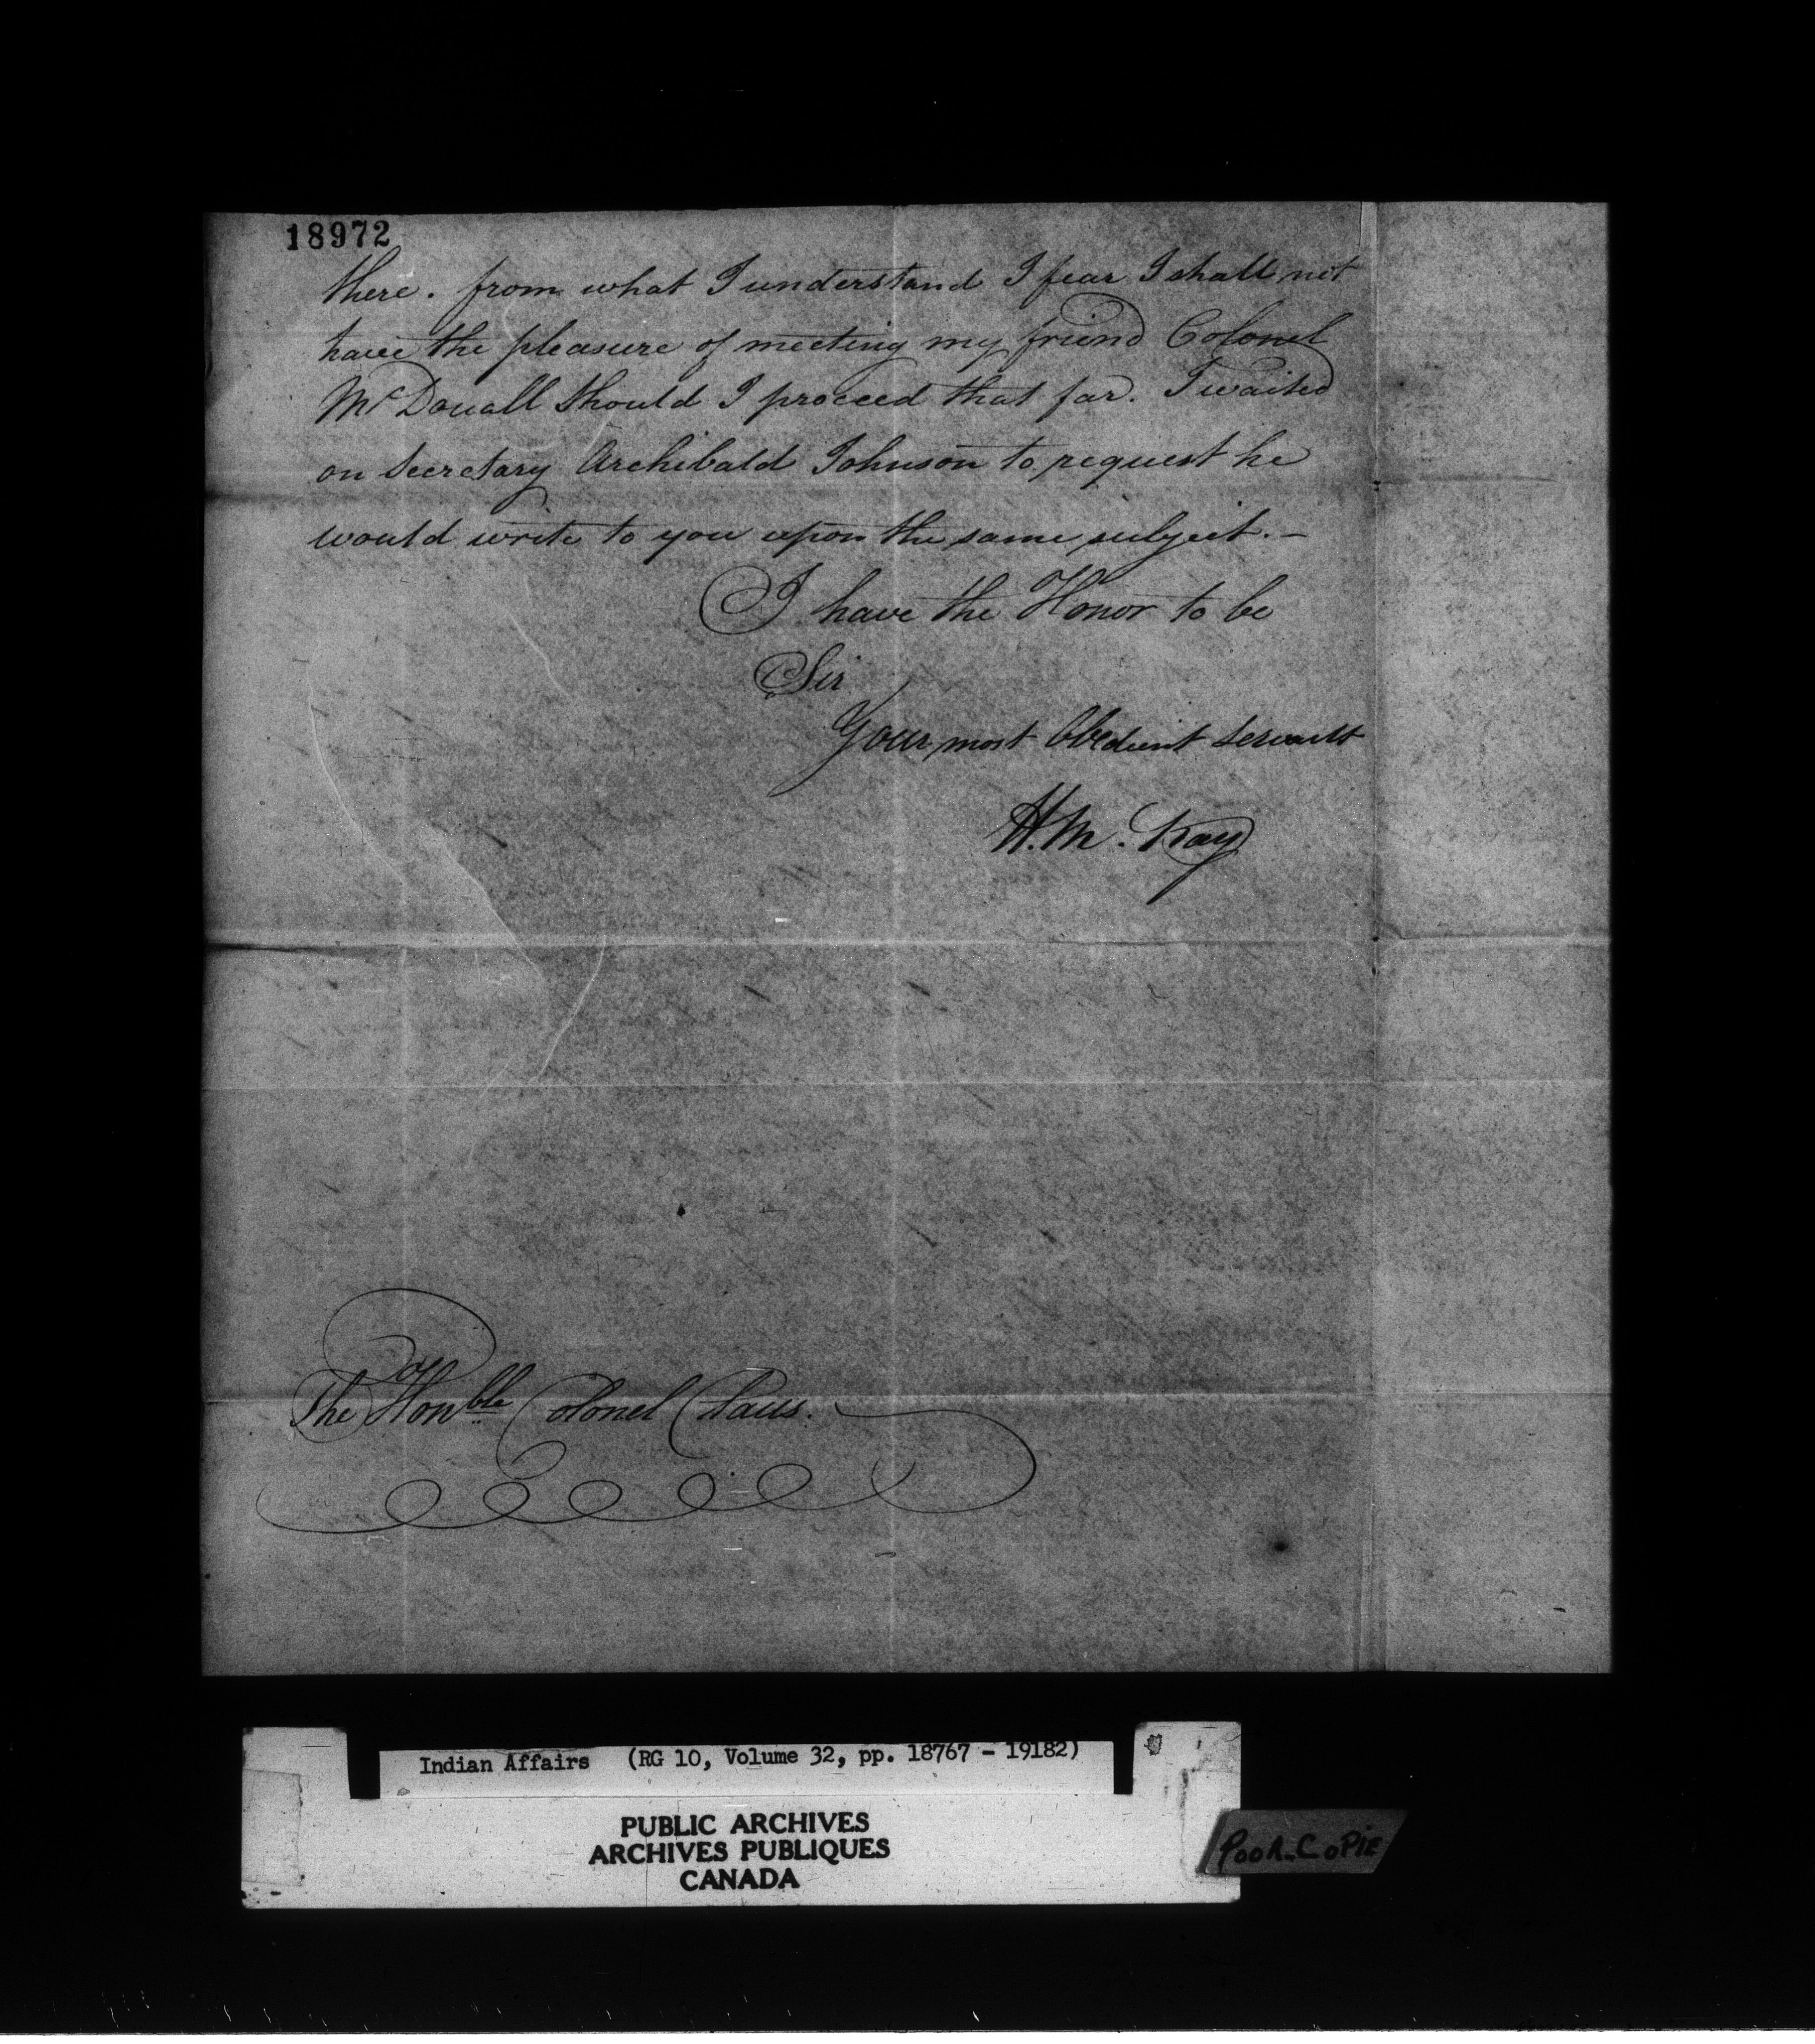 18972
there. from what I understand I fear I shall not
have the pleasure of meeting my friend Colonel
McDouall should I proceed that far. I waited
on Secretary Archibald Johnson to request he
would write to you upon the same subject. –
I have the Honor to be
Sir
Your most Obedient Servant
H. M. Kay
The Honble Colonel Claus.
Indian Affairs (RG 10, Volume 32, pp. 18767 - 19182)
PUBLIC ARCHIVES
ARCHIVES PUBLIQUES
CANADA
POOR COPIE